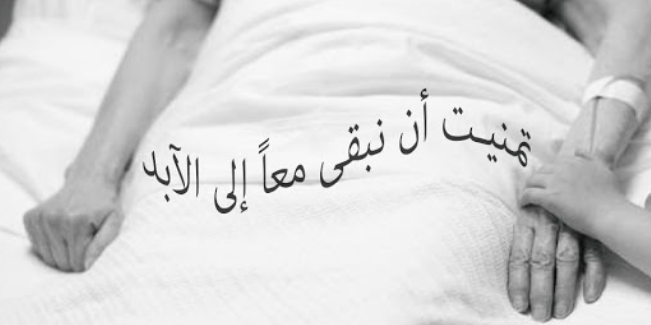 تمنيت أن نبقى معاً إلى الآبد